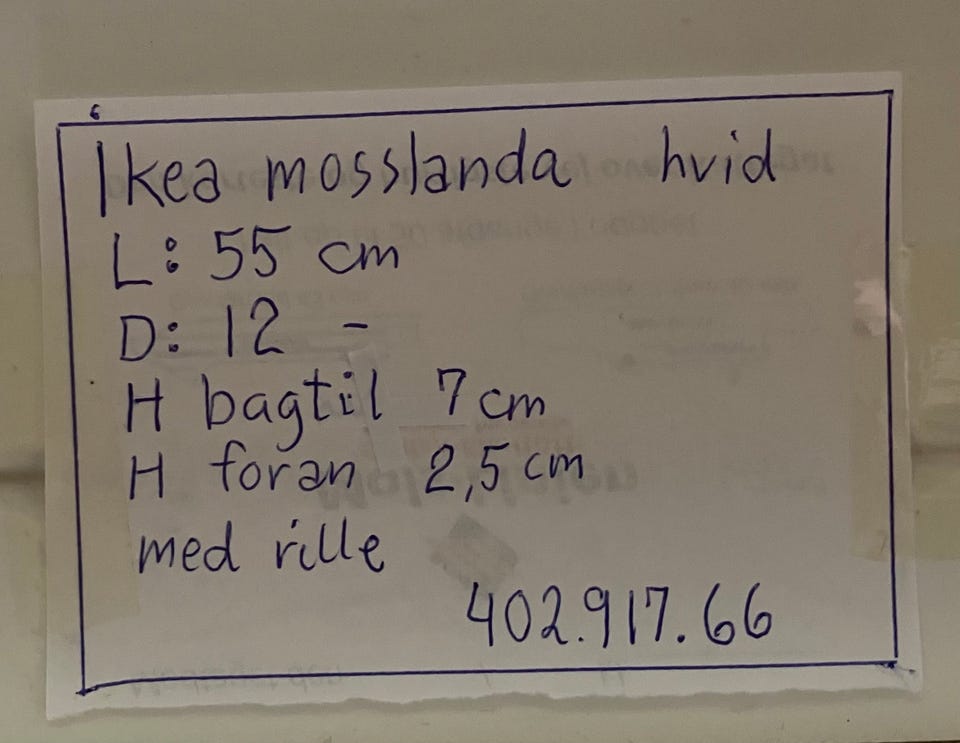 Ikea mosslanda hvid
L: 55 cm
D: 12 -
H bagtil 7 cm
H foran 2,5 cm
med rille
402.917.66